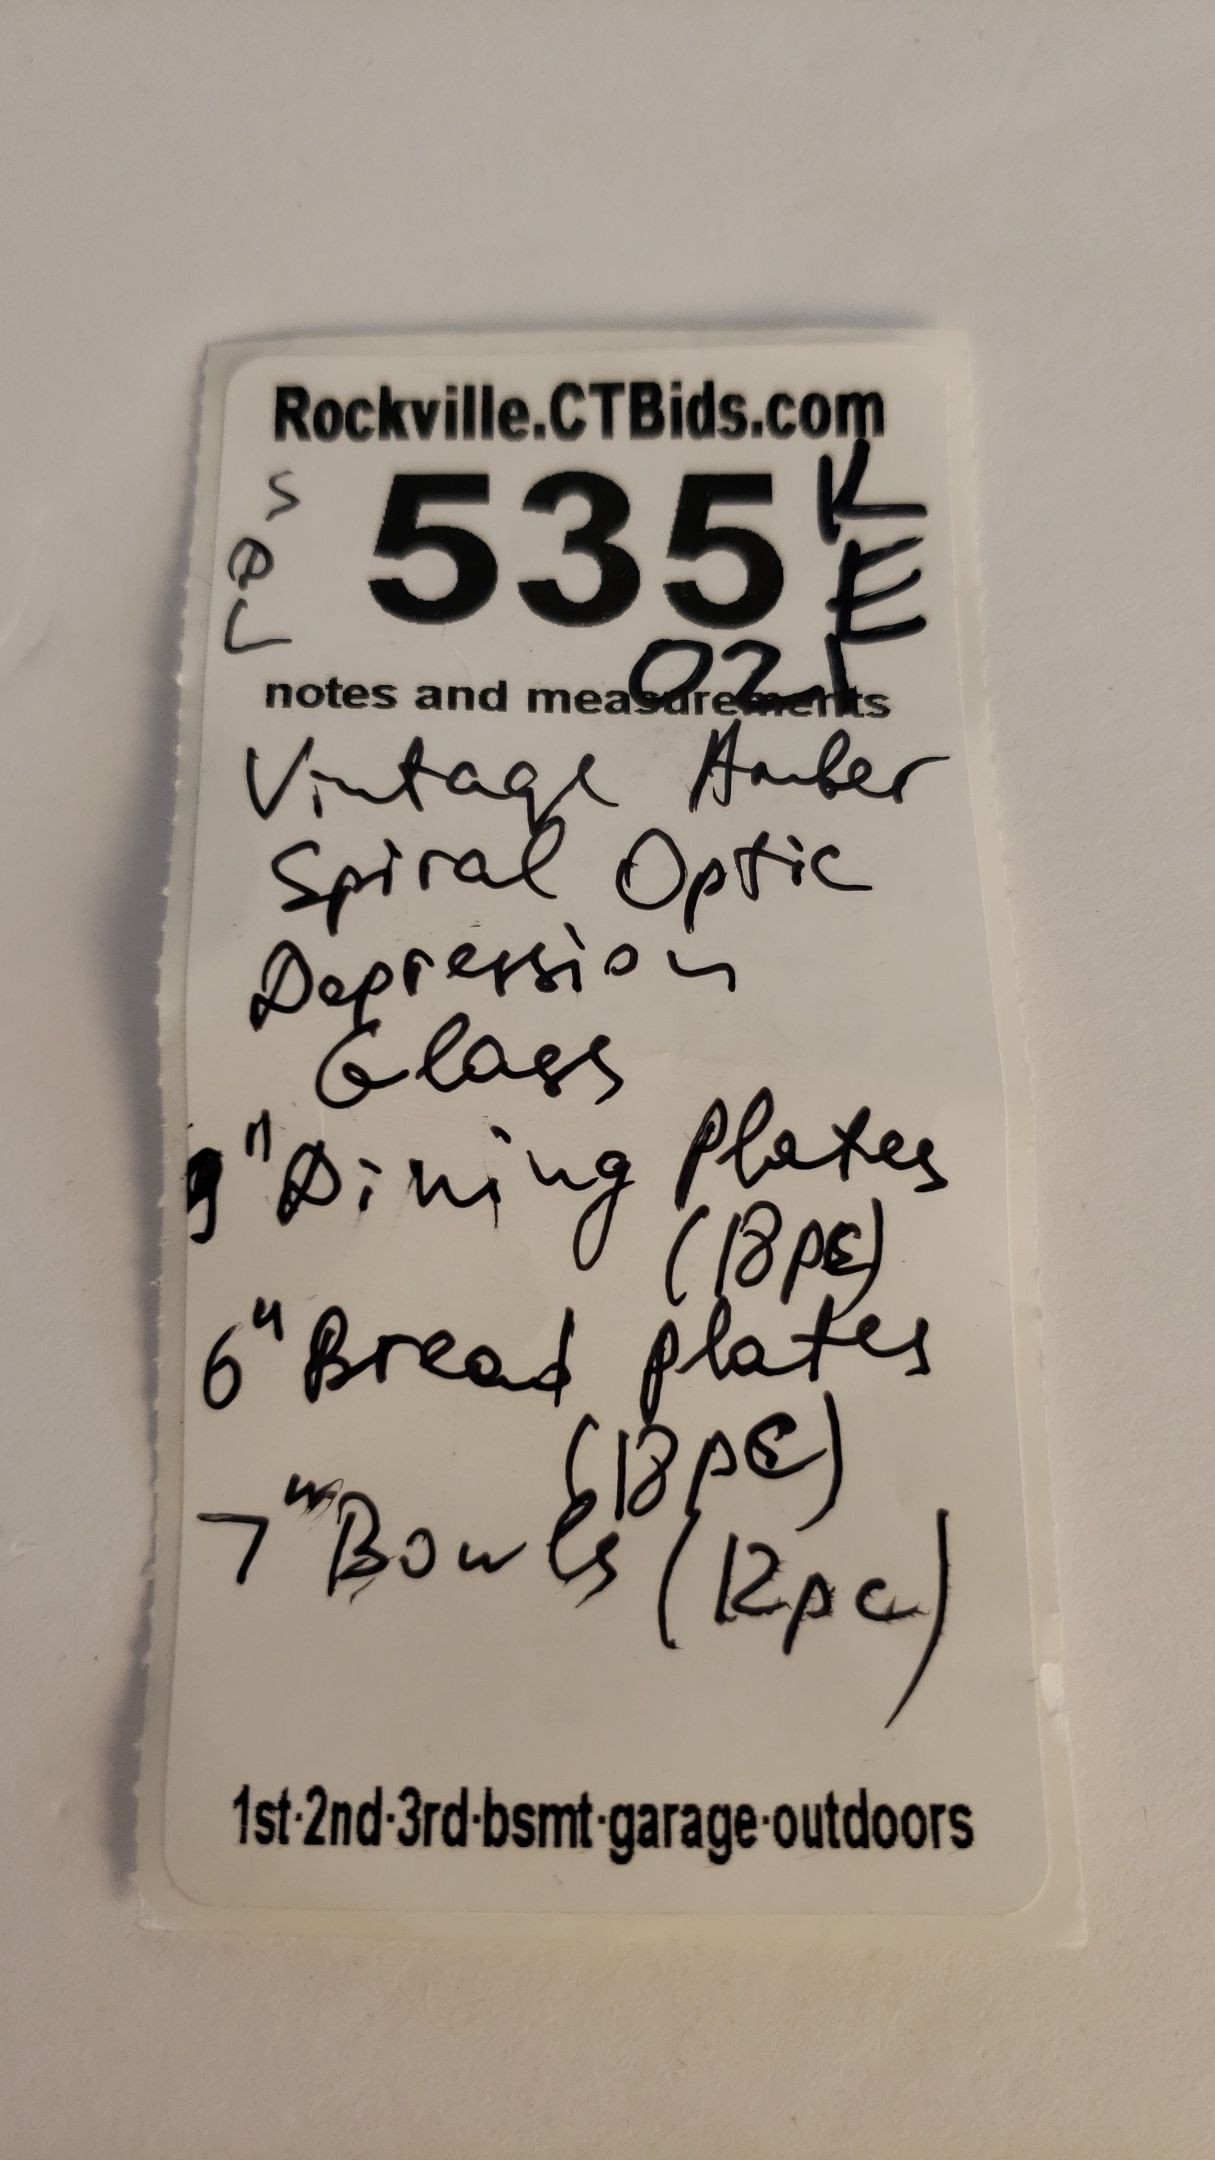 Rockville.CTBids.com
535
K
E
021
notes and measurements
Vintage Amber
Spiral Optic
Depression
Glass
9" Dining Plates
(18pc)
6" Bread plates
(18pc)
7" Bowls (12pc)
1st·2nd·3rd·bsmt·garage·outdoors